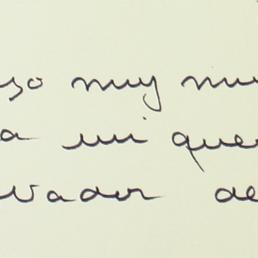 so muy mu
a mi que
vador de